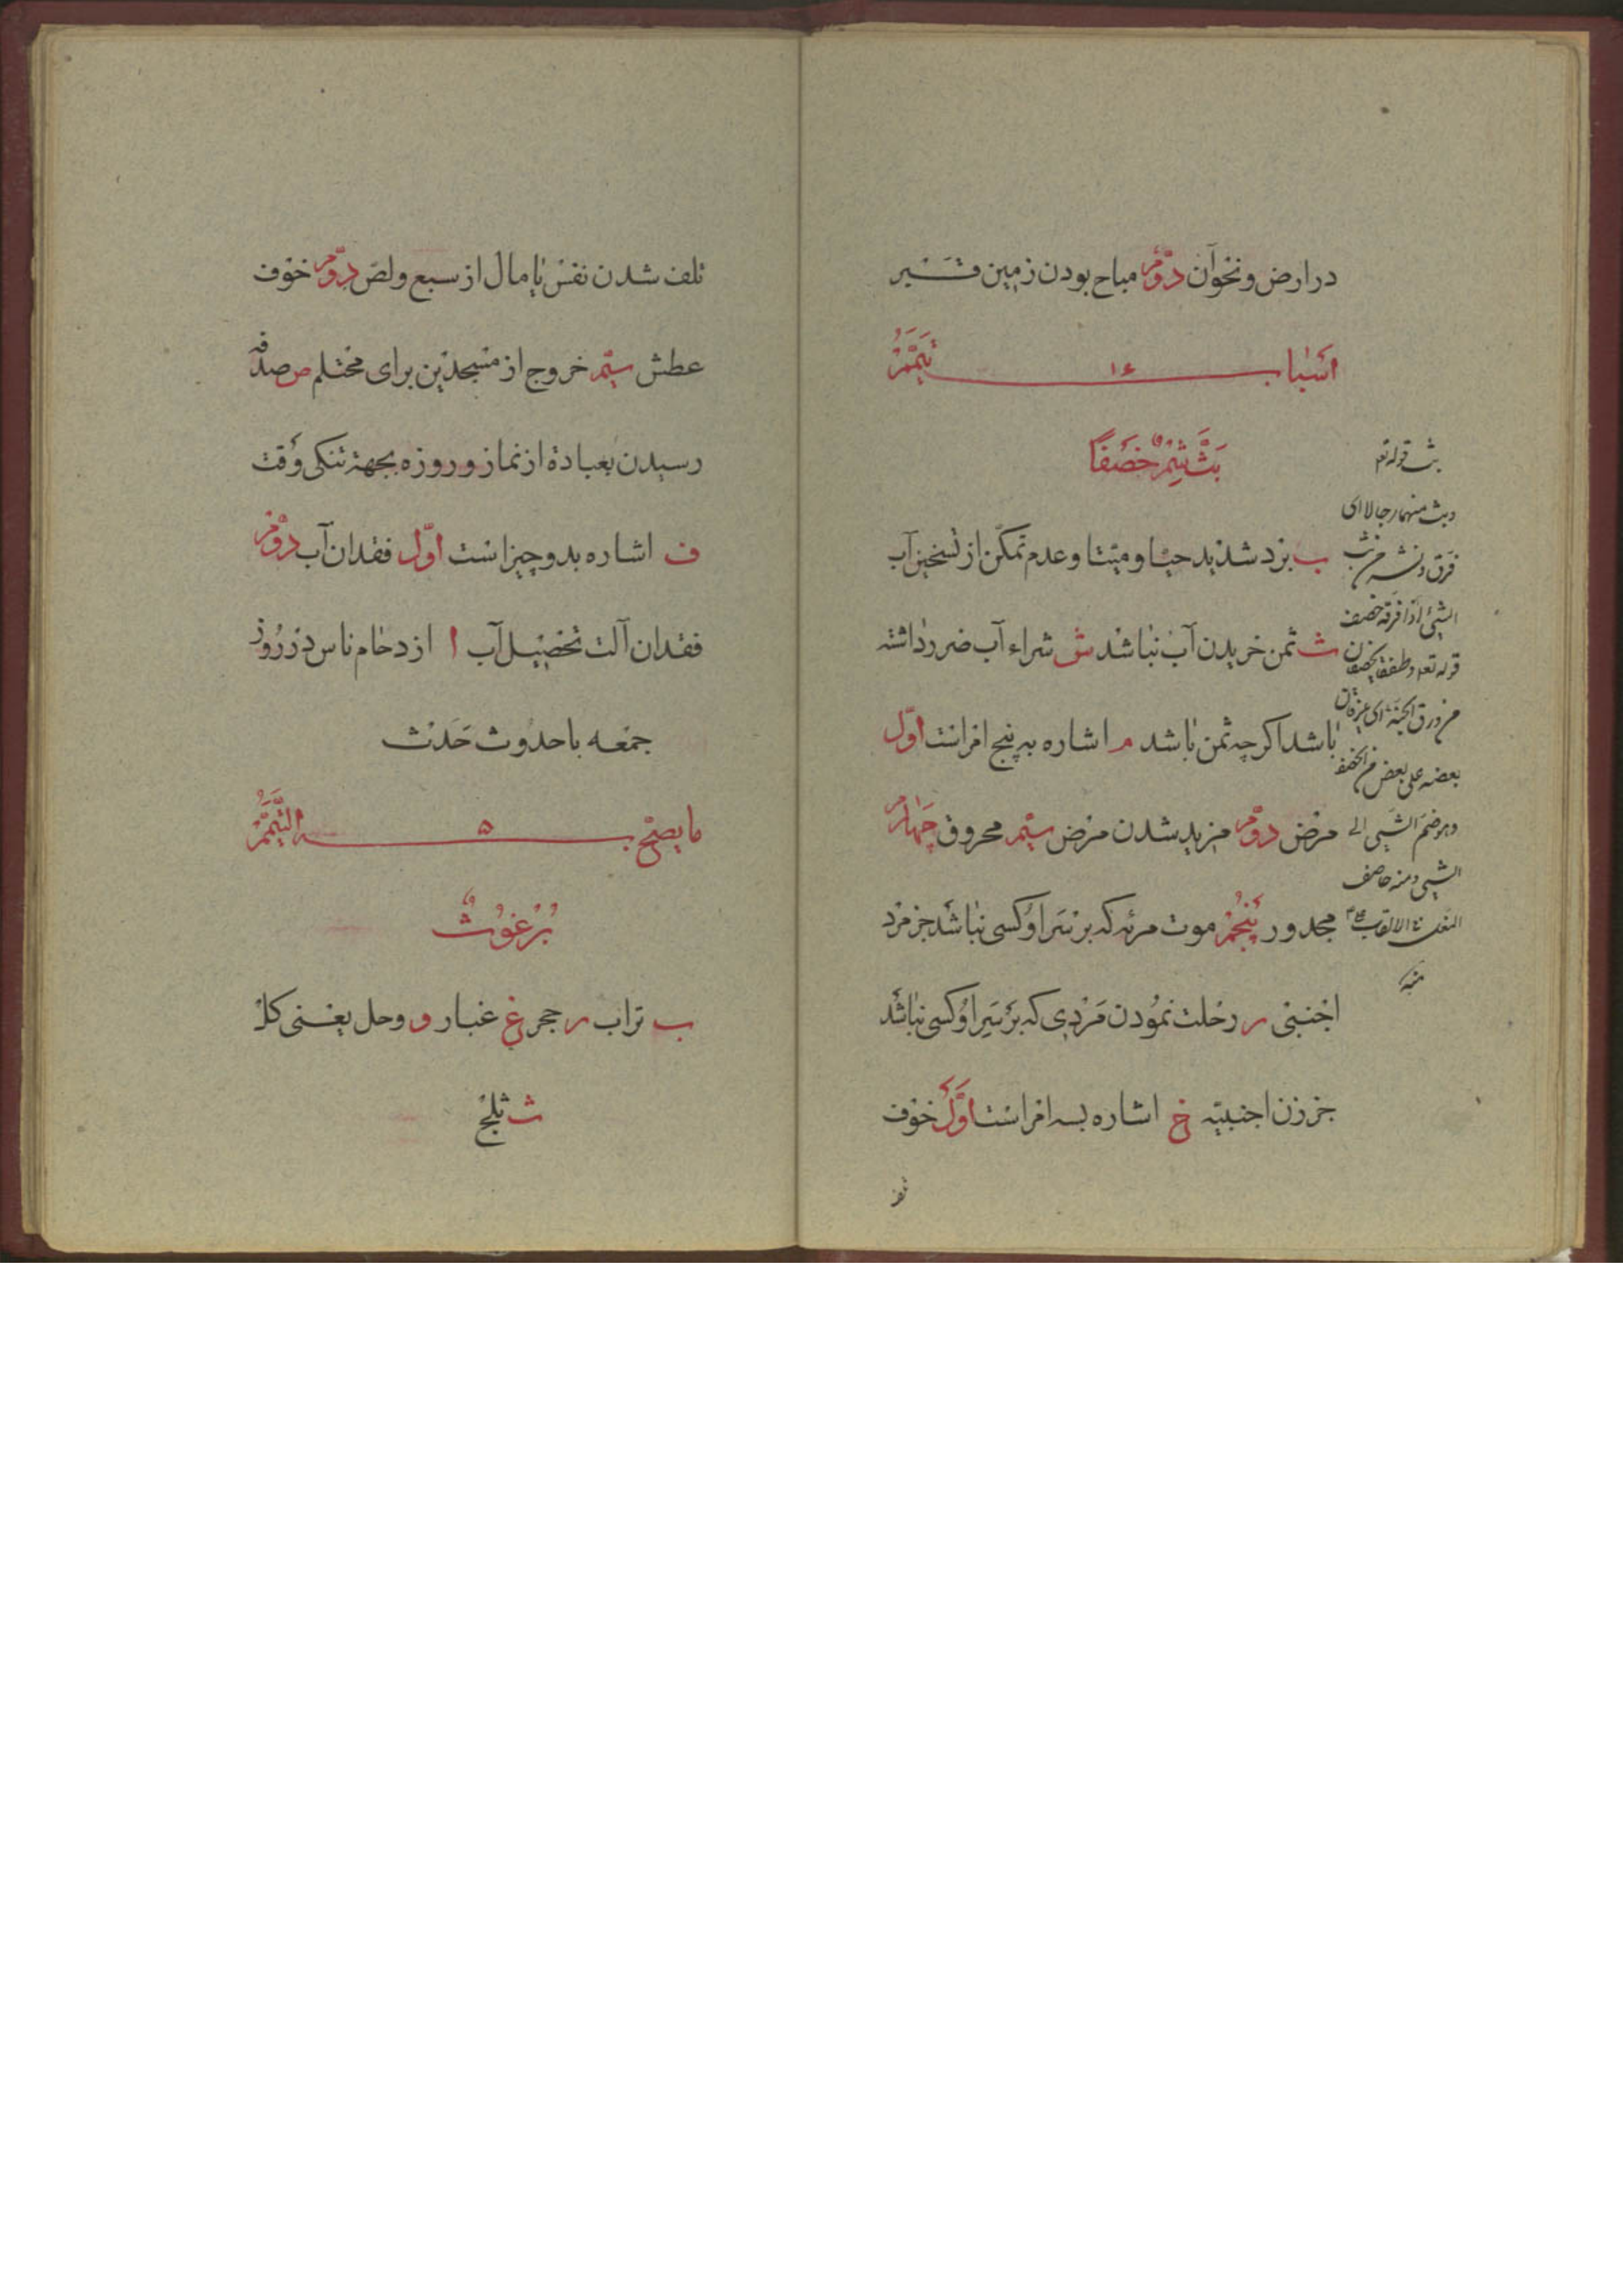 در ارض و نخوآن دوّم مباح بودن زمین قبر
اسباب ۱۶ تیمّم
بَثَّ ثِمْ خَصَفًا
ب برد شدید حیّا و میّتا و عدم تمکّن از تسخین آب
ث ثمن خریدن آب نباشد ش شراء آب ضرر داشته
باشد اکرچه ثمن باشد م اشاره به پنج امر است اوّل
مرض دوّم مزید شدن مرض سیّم محروق چهارم
مجدور پنجم موت مرئه که بر سر او کسی نباشد جز مرد
اجنبی ر رحلت نمودن مردی که بر سر او کسی نباشد
جز زن اجنبیّه خ اشاره بسه امر است اوّل خوف
بث قوله تعه
و بث منهما رجالا ای
فرق و نشر من بث
الشیئ اذا فرقه خصف
قوله تعه و طفقا یخصفان
من ورق الجنة ای یلزقان
بعضه علی بعض من الخصف
و هو ضم الشیی الی
الشیی و منه خاصف
النعل
منه
تلف شدن نفس یا مال از سبع و لصّ دوّم خوف
عطش سیّم خروج از مسجدین برای محتلم ص صدفه
رسیدن بعبادة از نماز و روزه بجهة تنکی وقت
ف اشاره بدو چیز است اوّل فقدان آب دوّم
فقدان آلت تحصیل آب ا ازدحام ناس در روز
جمعه با حدوث حدث
ما یصحّ به ۵ التیمّم
بُرْغُوثٌ
ب تراب ر حجر غ غبار و وحل یعنی کل
ث ثلج